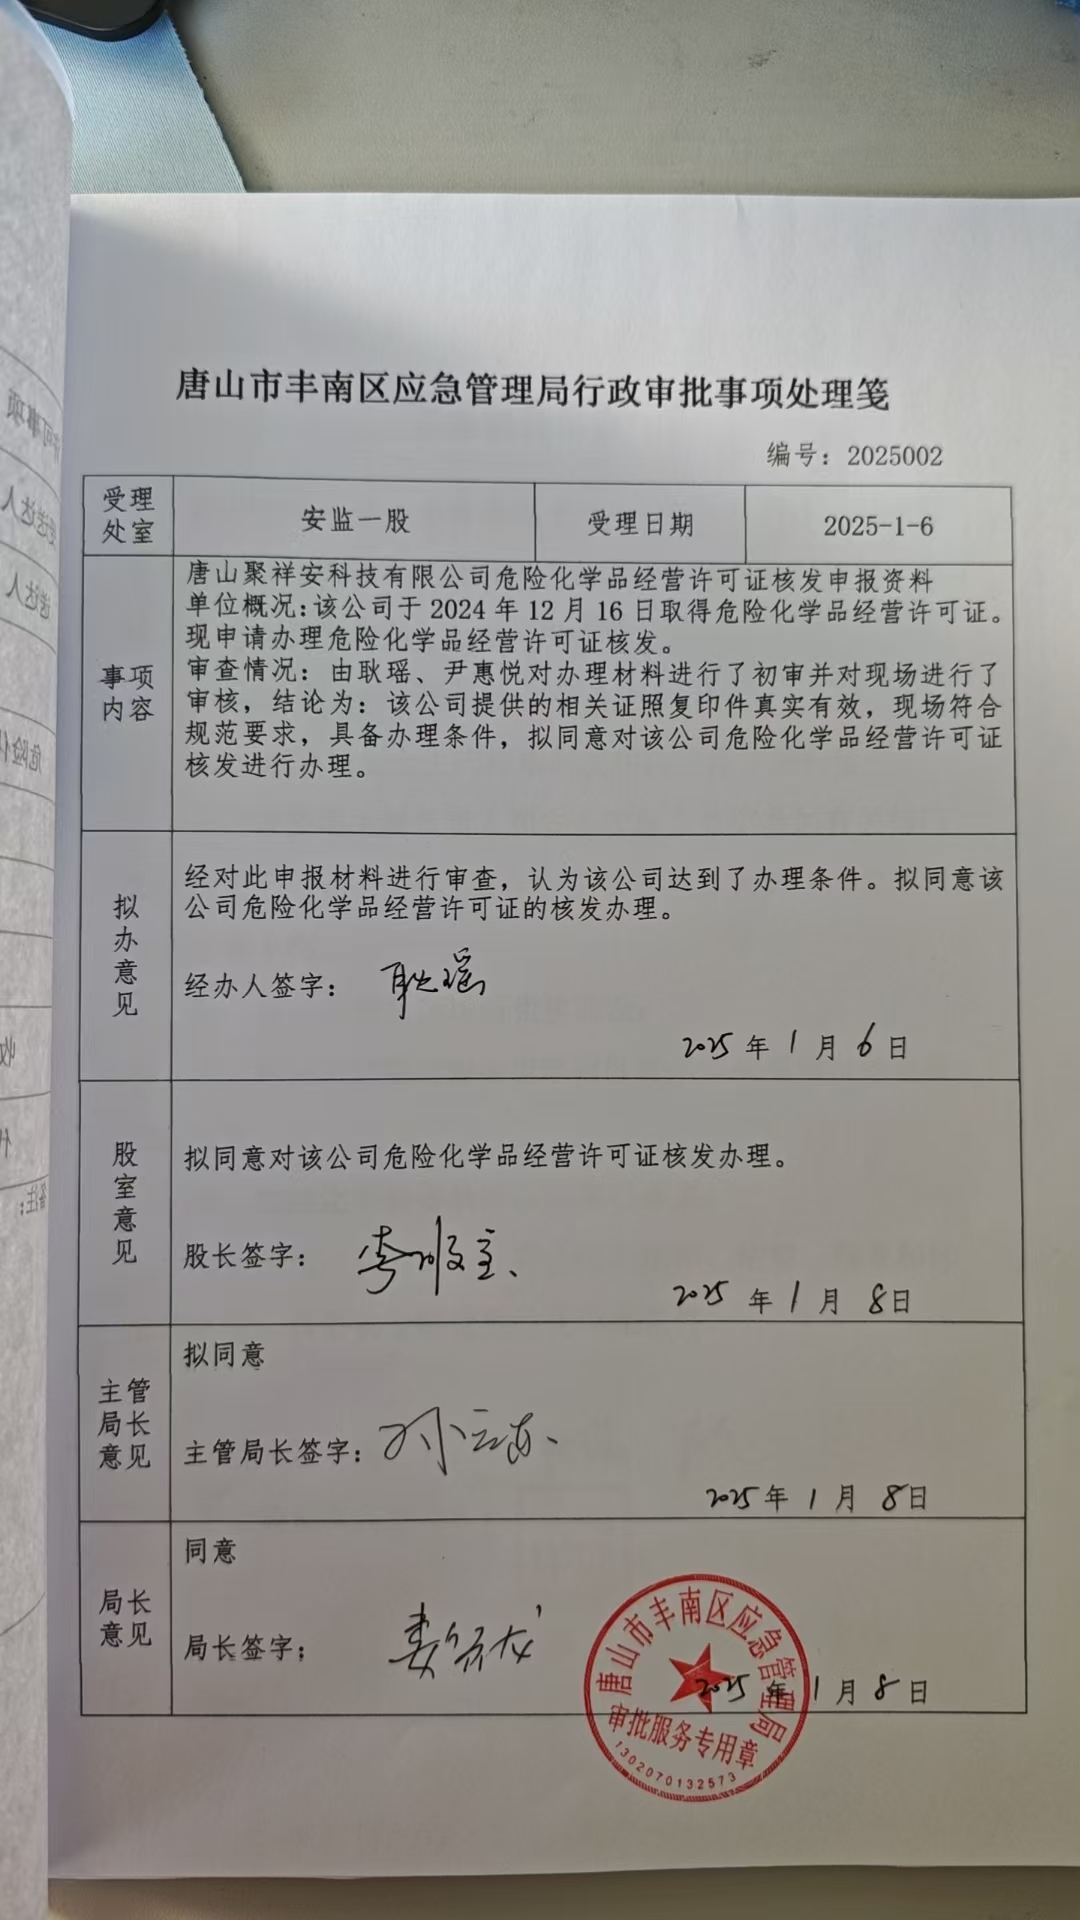 唐山市丰南区应急管理局行政审批事项处理笺
编号：2025002
受理处室
安监一股
受理日期
2025-1-6
事项内容
唐山聚祥安科技有限公司危险化学品经营许可证核发申报资料
单位概况：该公司于 2024 年 12 月 16 日取得危险化学品经营许可证。
现申请办理危险化学品经营许可证核发。
审查情况：由耿瑶、尹惠悦对办理材料进行了初审并对现场进行了
审核，结论为：该公司提供的相关证照复印件真实有效，现场符合
规范要求，具备办理条件，拟同意对该公司危险化学品经营许可证
核发进行办理。
拟办意见
经对此申报材料进行审查，认为该公司达到了办理条件。拟同意该
公司危险化学品经营许可证的核发办理。
经办人签字： 耿瑶
2025 年 1 月 6 日
股室意见
拟同意对该公司危险化学品经营许可证核发办理。
股长签字：
2025 年 1 月 8 日
主管局长意见
拟同意
主管局长签字：
2025 年 1 月 8 日
局长意见
同意
局长签字；
2025 年 1 月 8 日
唐山市丰南区应急管理局
审批服务专用章
1302070132573